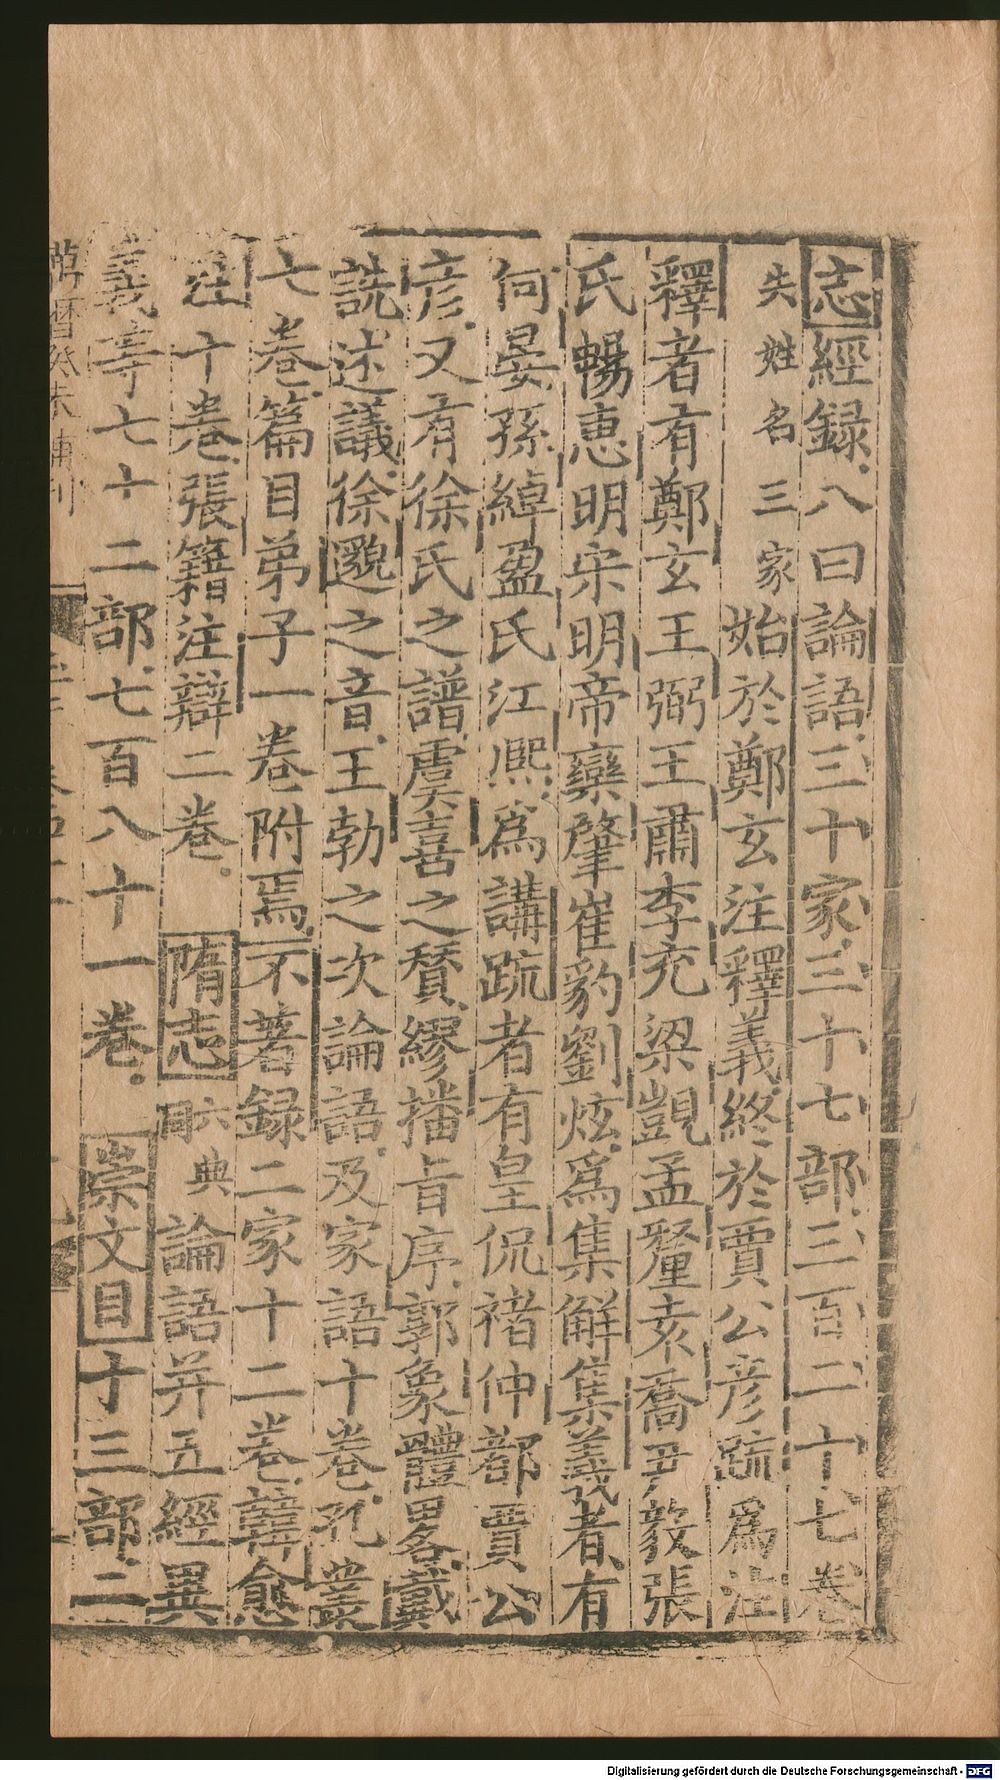 志經録八曰論語三十家三十七部三百二十七卷
失姓名三家始於鄭玄注釋義終於賈公彦疏爲注
釋者有鄭玄王弼王肅李充梁覬孟釐袁喬尹毅張
氏暢惠明宋明帝欒肇崔豹劉炫爲集解集義者有
何晏孫綽盈氏江熈爲講疏者有皇侃褚仲都賈公
彦又有徐氏之譜虞喜之賛繆播旨序郭象體畧戴
詵述議徐邈之音王勃之次論語及家語十卷孔叢
七卷篇目弟子一卷附焉不著録二家十二卷韓愈
注十卷張籍注辯二卷 隋志六典同論語并五經異
義等七十二部七百八十一卷 崇文目十三部二
萬曆癸未補刊
Digitalisierung gefördert durch die Deutsche Forschungsgemeinschaft - DFG